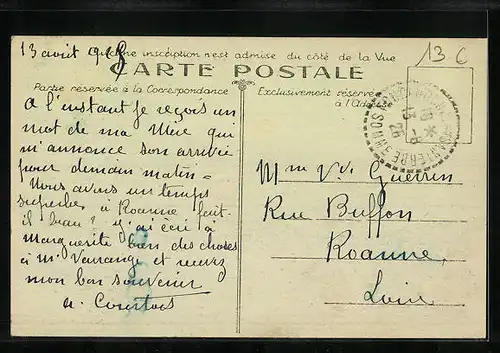 13 août 1928
Aucune inscription n'est admise du côté de la Vue
13 C
CARTE POSTALE
Partie réservée à la Correspondance
Exclusivement réservé
à l'Ad
A l'instant je reçois un
mot de ma Mère qui
m'annonce son arrivée
pour demain matin –
Nous avons un temps
superbe, à Roanne fait-
il beau ? j'ai écrit à
Marguerite bien des choses
à Mr et recevez
mon bon souvenir
A. Courtois
Mme Vve Guerrin
Rue Buffon
Roanne
Loire
13 -8
28